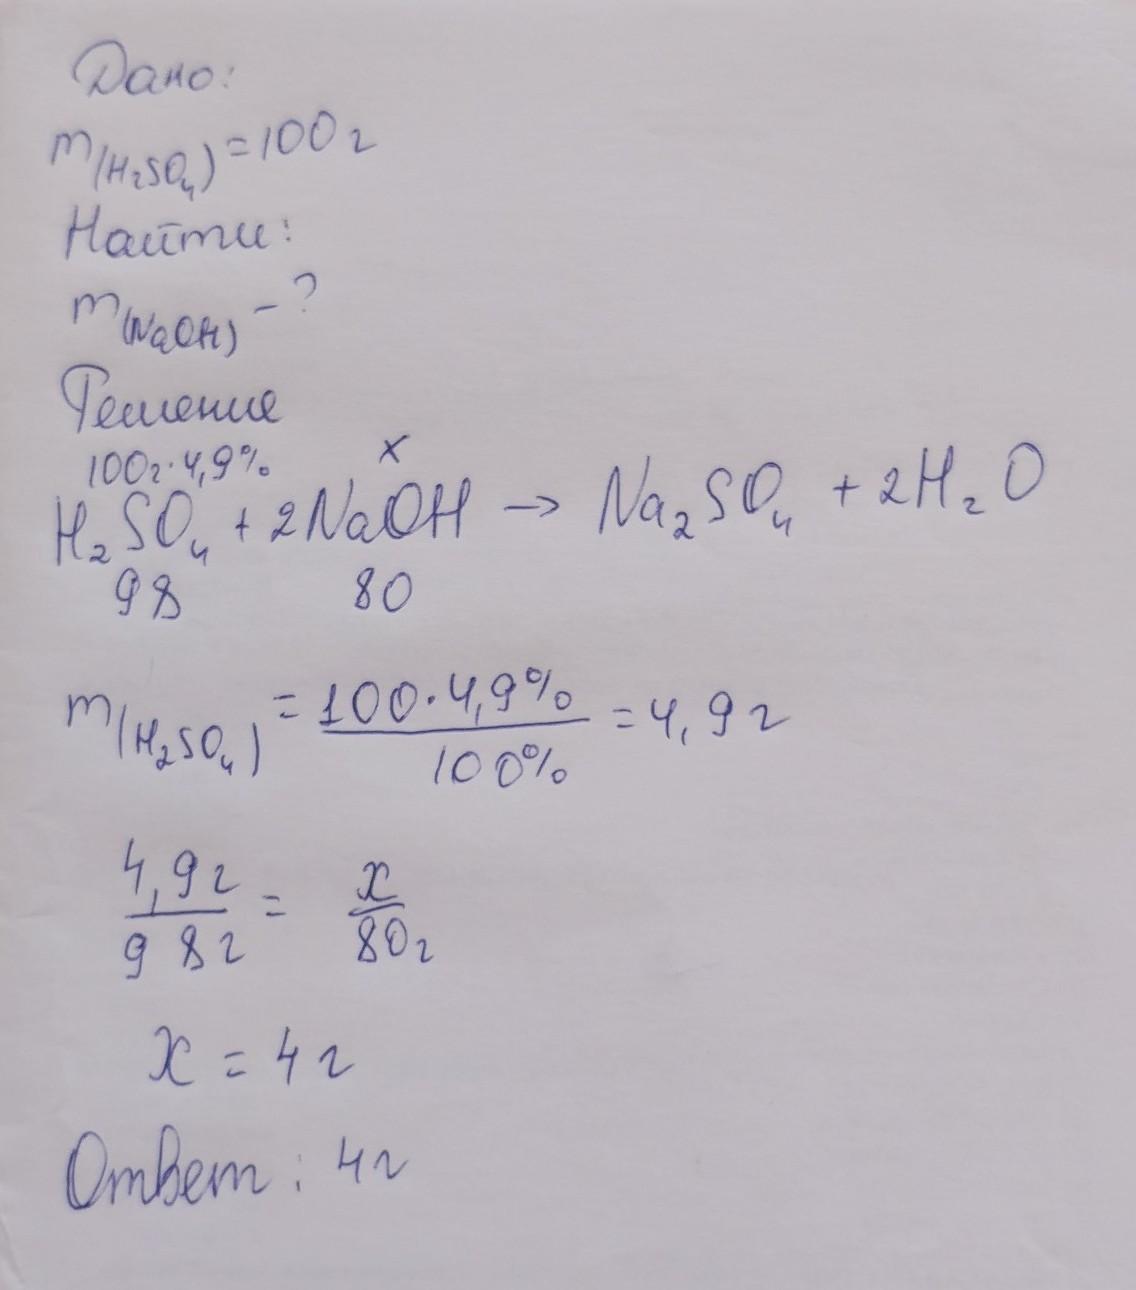 Дано:
m(H₂SO₄) = 100 г
Найти:
m(NaOH) - ?
Решение
100г·4,9% x
H₂SO₄ + 2NaOH → Na₂SO₄ + 2H₂O
98 80
m(H₂SO₄) = 100·4,9% / 100% = 4,9 г
4,9г / 98г = x / 80г
x = 4 г
Ответ: 4г